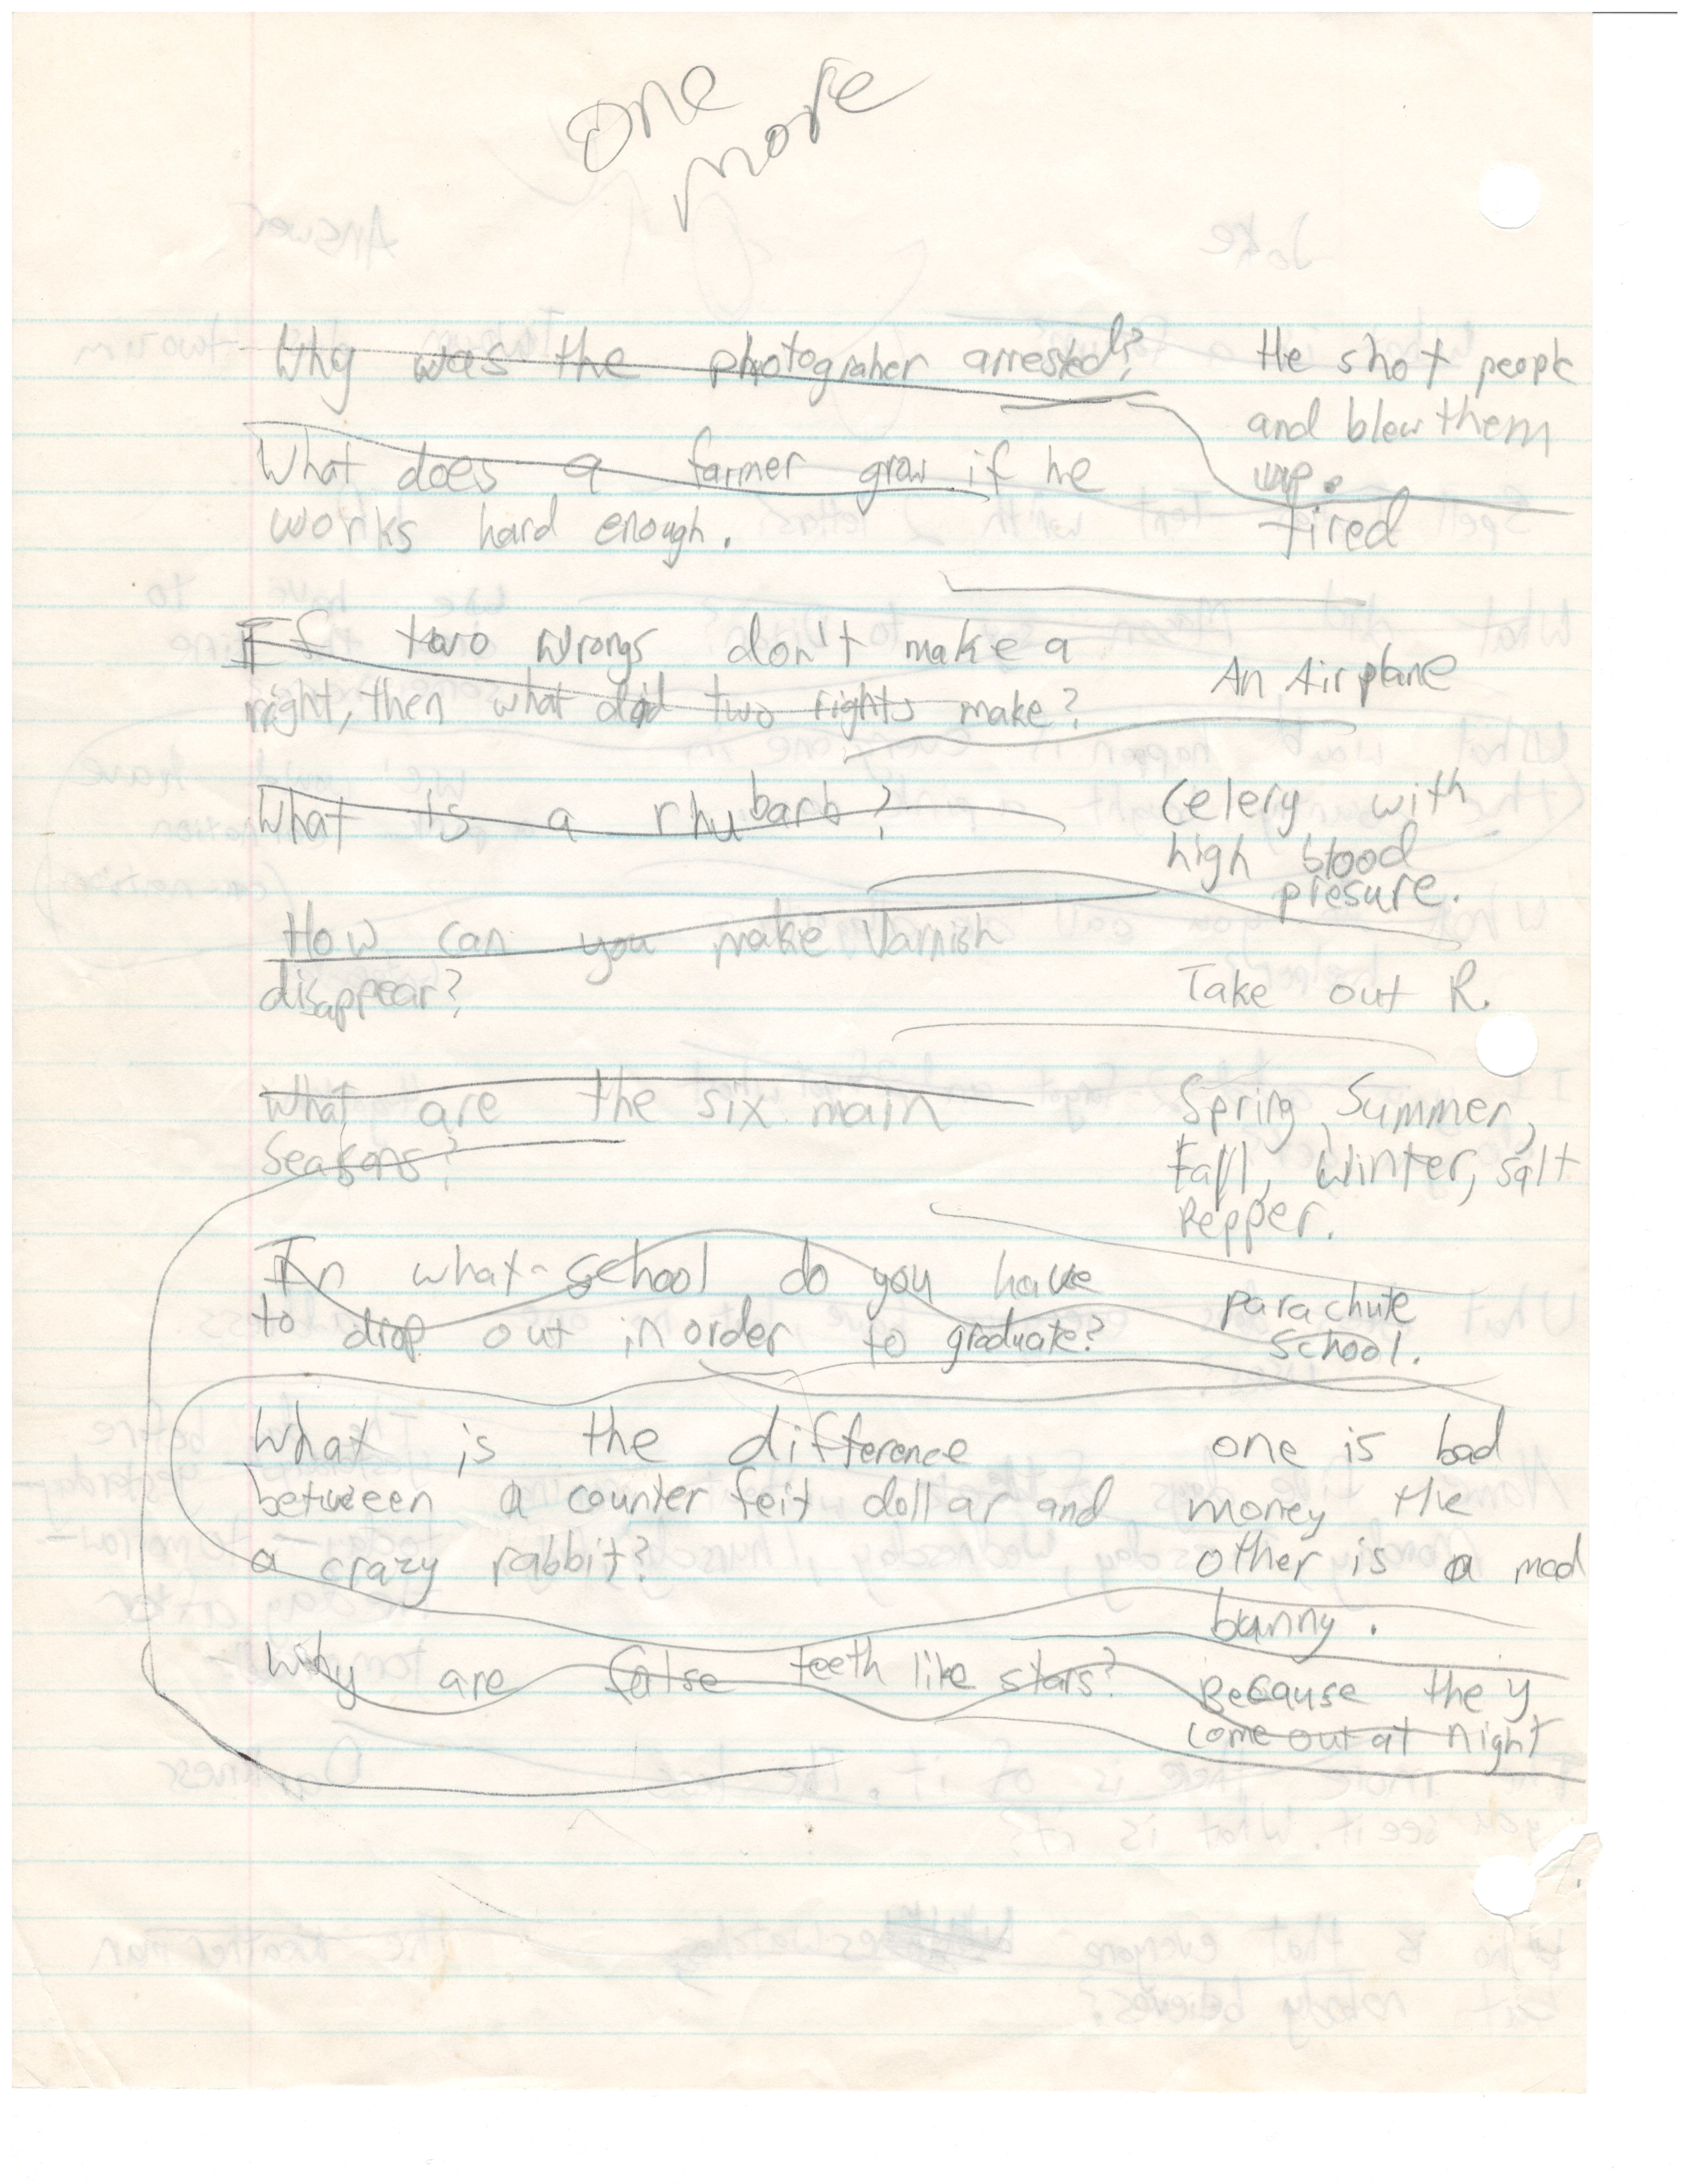 one
more
Why was the photograher arrested?
He shot people
and blew them
up.
What does a farmer grow if he
works hard enough.
tired
If two wrongs don't make a
right, then what did two rights make?
An Airplane
What is a rhubarb?
Celery with
high blood
presure.
How can you make Varnish
disappear?
Take out R.
What are the six main
seasons?
Spring, Summer,
Fall, Winter, salt
Pepper.
In what school do you have
to drop out in order to graduate?
parachute
school.
What is the difference
between a counter feit dollar and
a crazy rabbit?
one is bad
money the
other is a mad
bunny.
Why are false teeth like stars?
Because they
come out at night